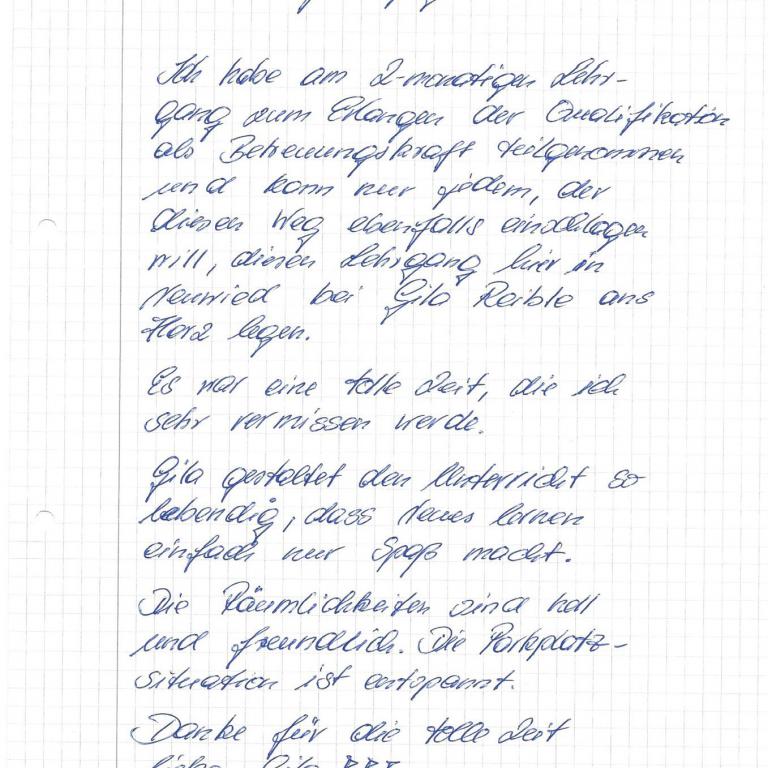 Ich habe am 2-monatigen Lehr-
gang zum Erlangen der Qualifikation
als Betreuungskraft teilgenommen
und kann nur jedem, der
diesen Weg ebenfalls einschlagen
will, diesen Lehrgang hier in
Neuwied bei Gila Reible ans
Herz legen.
Es war eine tolle Zeit, die ich
sehr vermissen werde.
Gila gestaltet den Unterricht so
lebendig, dass Neues lernen
einfach nur Spaß macht.
Die Räumlichkeiten sind hell
und freundlich. Die Parkplatz-
situation ist entspannt.
Danke für die tolle Zeit
liebe Gila !!!